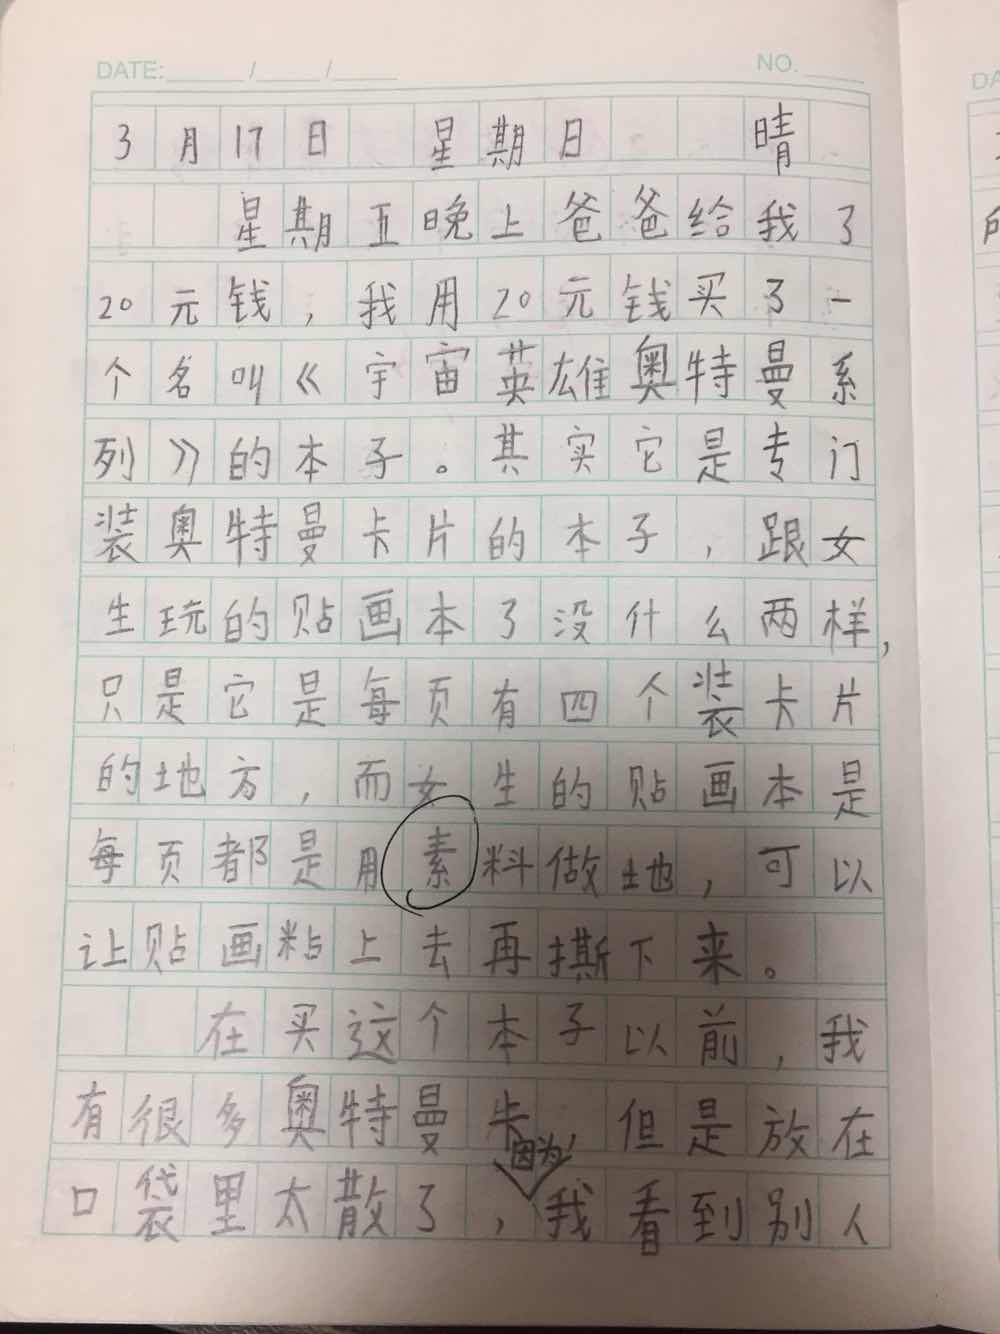 DATE: / / NO.
3月17日 星期日 晴
星期五晚上爸爸给我了
20元钱，我用20元钱买了一
个名叫《宇宙英雄奥特曼系
列》的本子。其实它是专门
装奥特曼卡片的本子，跟女
生玩的贴画本了没什么两样，
只是它是每页有四个装卡片
的地方，而女生的贴画本是
每页都是用素料做地，可以
让贴画粘上去再撕下来。
在买这个本子以前，我
有很多奥特曼卡 但是放在
因为
口袋里太散了，我看到别人
DA